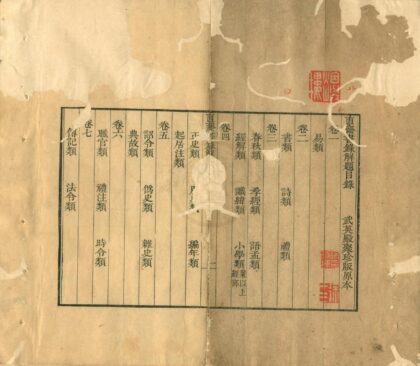 直齋書錄解題目錄 武英殿聚珍版原本
卷一
易類
卷二
書類 詩類 禮類
卷三
春秋類 孝經類 語孟類
經解類 讖緯類 小學類 案以上經部
卷四
正史類 編年類
起居注類
卷五
詔令類 偽史類 雜史類
典故類
卷六
職官類 禮注類 時令類
卷七
傳記類 法令類